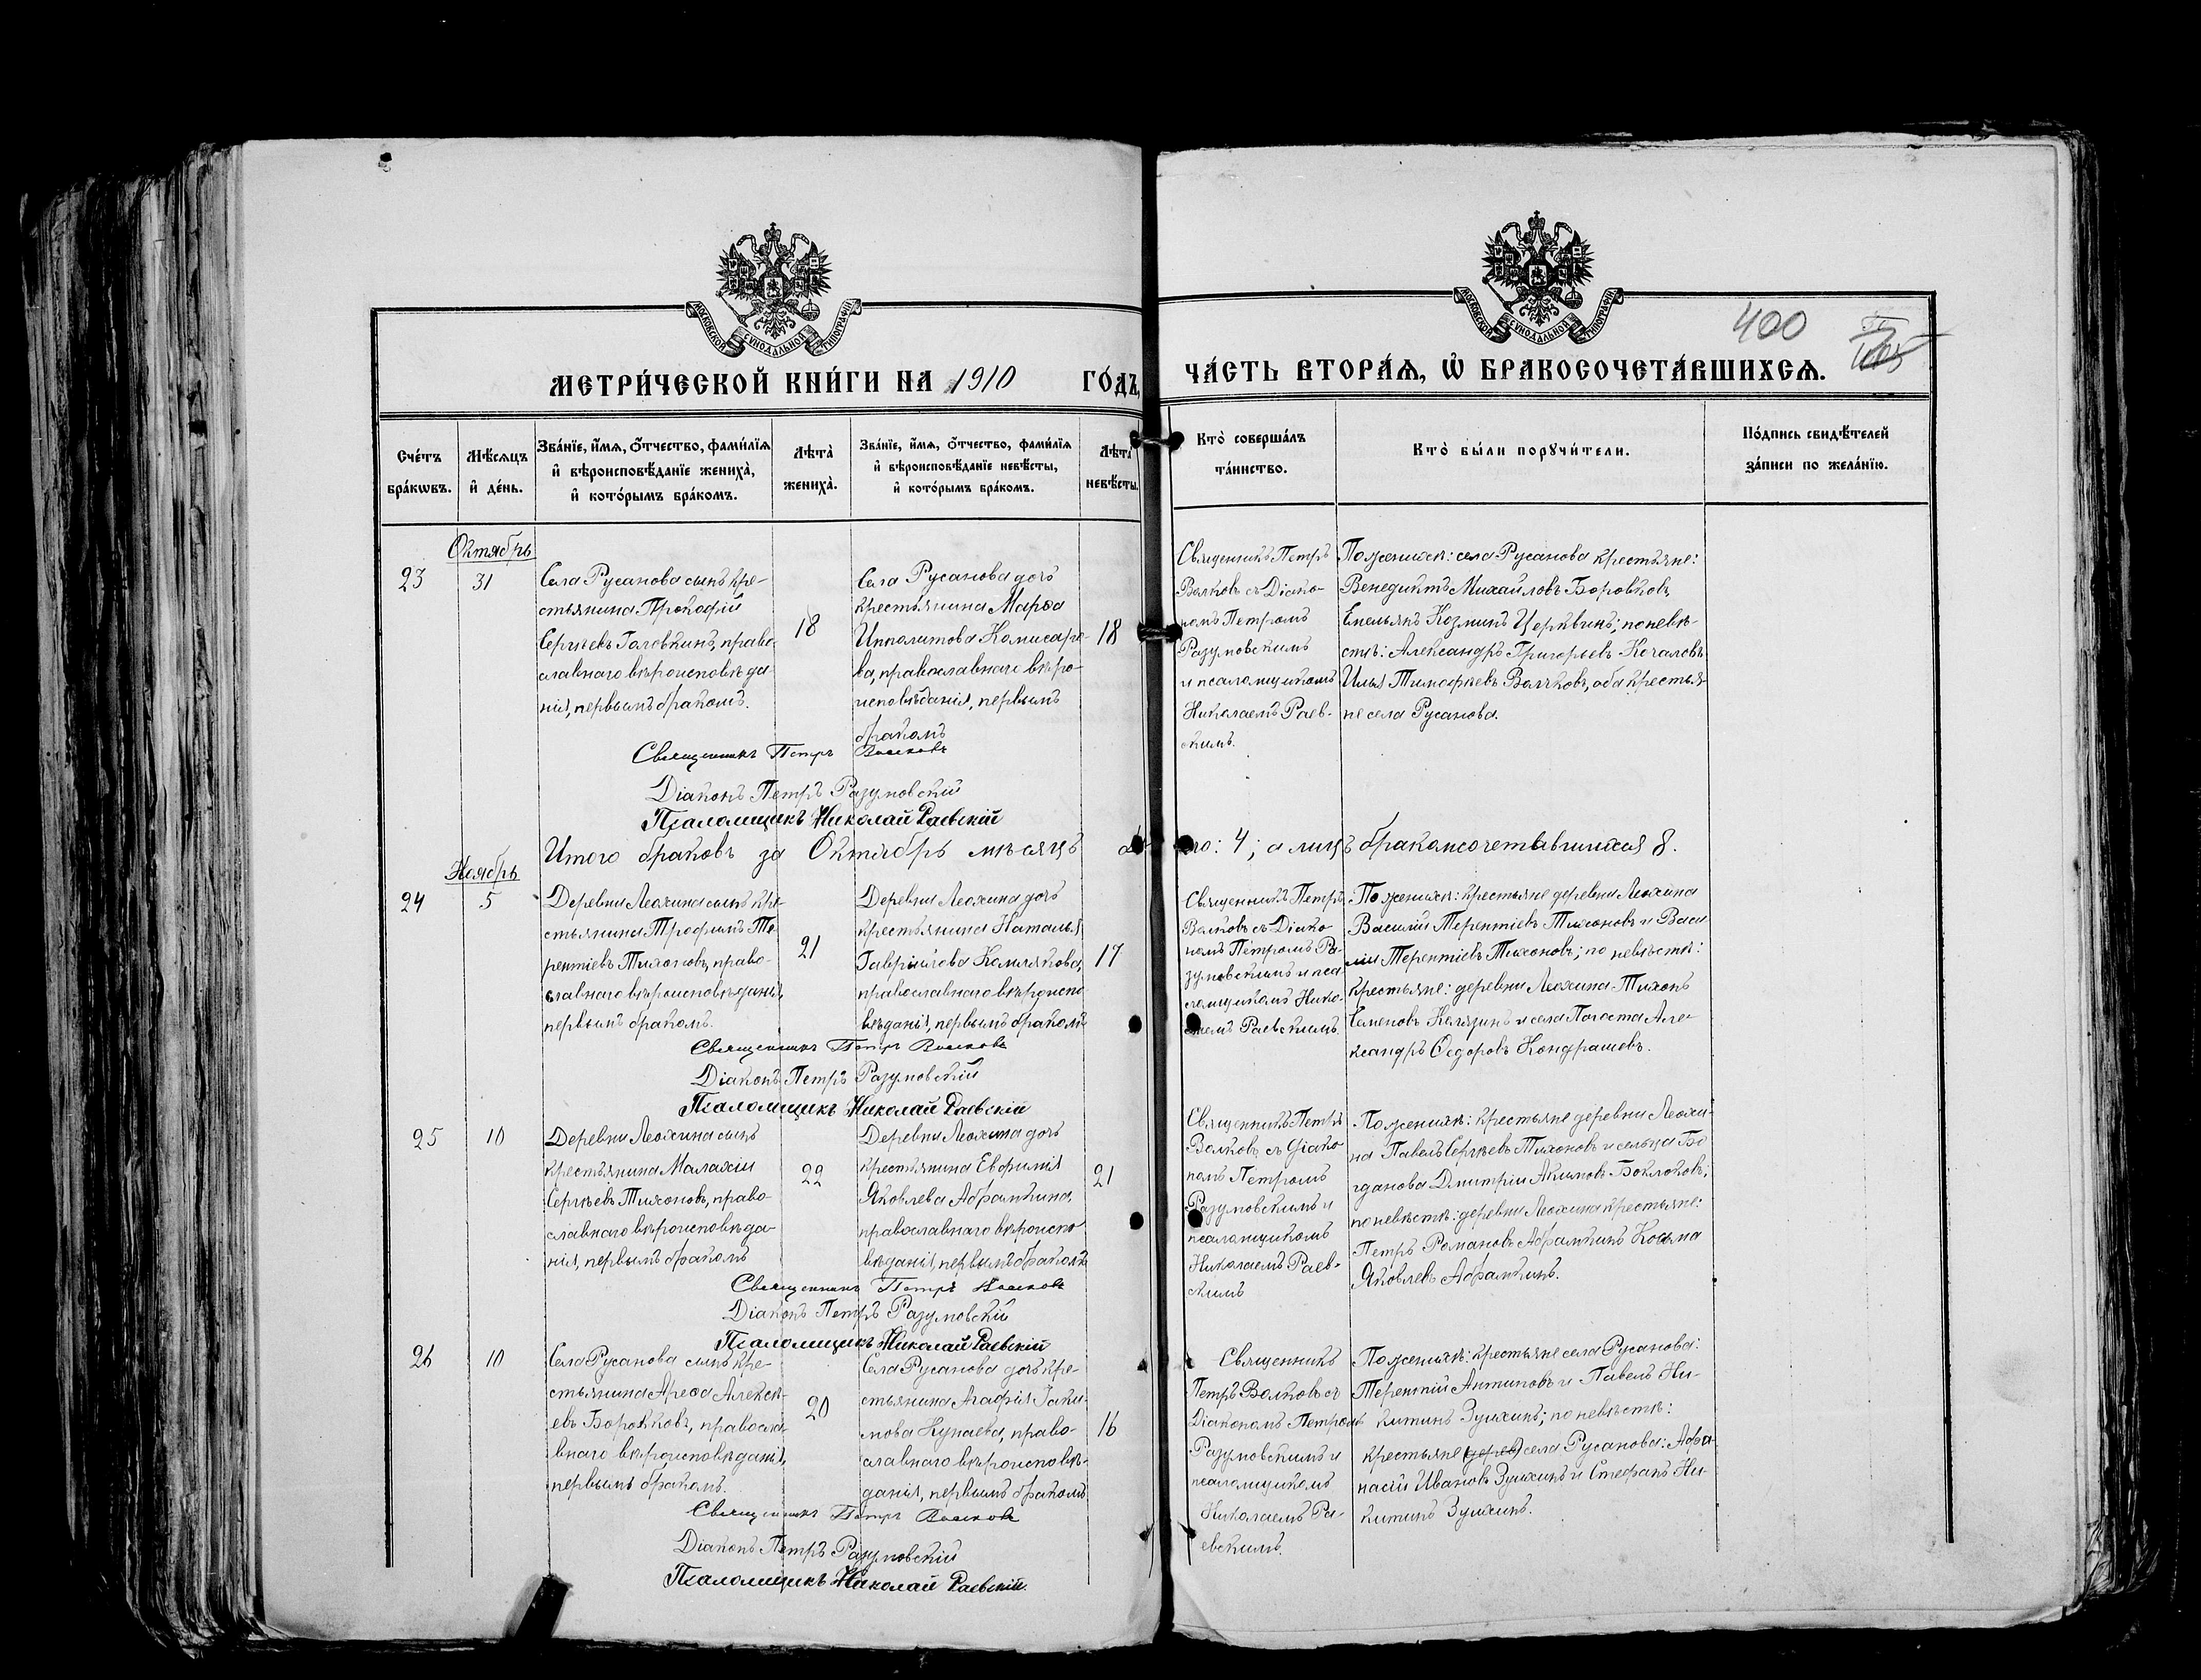 МОСКОВСКОЙ СѴНОДАЛЬНОЙ ТИПОГРАФІИ
МОСКОВСКОЙ СѴНОДАЛЬНОЙ ТИПОГРАФІИ
400
МЕТРИ́ЧЕСКОЙ КНИ́ГИ НА 1910 ГО́ДЪ,
ЧА́СТЬ ВТОРА́Ѧ, Ѡ҆ БРАКОСОЧЕТА́ВШИХСѦ.
Сче́тъ
бра́кѡвъ.
Мѣ́сѧцъ
и҆ де́нь.
Зва́нїе, и҆́мѧ, ѻ҆́тчество, фами́лїѧ
и҆ вѣроисповѣ́данїе жениха̀,
и҆ кото́рымъ бра́комъ.
Лѣта̀
жениха̀.
Зва́нїе, и҆́мѧ, ѻ҆́тчество, фами́лїѧ
и҆ вѣроисповѣ́данїе невѣ́сты,
и҆ кото́рымъ бра́комъ.
Лѣта̀
невѣ́сты.
Кто̀ соверша́лъ
та́инство.
Кто̀ бы́ли порꙋчи́тели.
По́дпись свидѣ́телей
за́писи по жела́нїю.
Октябрь
23
31
Села Русанова сынъ кре-
стьянина Прокофій
Сергѣевъ Головкинъ, право-
славнаго вѣроисповѣда-
нія, первымъ бракомъ.
18
Села Русанова дочь
крестьянина Марѳа
Ипполитова Комисаро-
ва, православнаго вѣро-
исповѣданія, первымъ
бракомъ
18
Священникъ Петръ
Волковъ съ Діако-
номъ Петромъ
Разумовскимъ
и псаломщикомъ
Николаемъ Раев-
скимъ.
По женихѣ: села Русанова крестьяне:
Венедиктъ Михайловъ Боровковъ,
Емельянъ Козминъ Церквинъ; по невѣ-
стѣ: Александръ Григорьевъ Кочаловъ
Илья Тимофѣевъ Волчковъ, оба крестья-
не села Русанова.
Священникъ Петръ Волковъ
Діаконъ Петръ Разумовскій
Псаломщикъ Николай Раевскій
Итого браковъ за Октябрь мѣсяцъ
было: 4; а лицъ бракомсочетавшихся 8.
Ноябрь
24
5
Деревни Леохина сынъ кре-
стьянина Трофимъ Те-
рентіевъ Тихоновъ, право-
славнаго вѣроисповѣданія,
первымъ бракомъ.
21
Деревни Леохина дочь
крестьянина Наталья
Гавріилова Комлякова,
православнаго вѣроиспо-
вѣданія, первымъ бракомъ
17
Священникъ Петръ
Волковъ съ Діако-
номъ Петромъ Ра-
зумовскимъ и пса-
ломщикомъ Нико-
лаемъ Раевскимъ.
По женихѣ: крестьяне деревни Леохина
Василій Терентіевъ Тихоновъ и Васи-
лій Терентіевъ Тихоновъ; по невѣстѣ:
крестьяне: деревни Леохина Тихонъ
Семеновъ Келязинъ и села Погоста Але-
ксандръ Ѳедоровъ Кондрашевъ.
Священникъ Петръ Волковъ
Діаконъ Петръ Разумовскій
Псаломщикъ Николай Раевскій
25
10
Деревни Леохина сынъ
крестьянина Малахіи
Сергѣевъ Тихоновъ, право-
славнаго вѣроисповѣда-
нія, первымъ бракомъ
22
Деревни Леохина дочь
крестьянина Евфимія
Яковлева Абрамкина,
православнаго вѣроиспо-
вѣданія, первымъ бракомъ
21
Священникъ Петръ
Волковъ, съ Діако-
номъ Петромъ
Разумовскимъ и
псаломщикомъ
Николаемъ Раев-
скимъ
По женихѣ: крестьяне деревни Леохи-
на Павелъ Сергѣевъ Тихоновъ и сельца Бо-
гданова Дмитріи Акимовъ Боклоковъ;
по невѣстѣ: деревни Леохина крестьяне:
Петръ Романовъ Абрамкинъ Косьма
Яковлевъ Абрамкинъ.
Священникъ Петръ Волковъ
Діаконъ Петръ Разумовскій
Псаломщикъ Николай Раевскій
26
10
Села Русанова сынъ кре-
стьянина Ареѳа Алексѣ-
евъ Боровковъ, правосла-
внаго вѣроисповѣданія,
первымъ бракомъ.
20
Села Русанова дочь кре-
стьянина Агафія Іаки-
мова Купаева, право-
славнаго вѣроисповѣ-
данія, первымъ бракомъ
16
Священникъ
Петръ Волковъ съ
Діакономъ Петромъ
Разумовскимъ и
псаломщикомъ
Николаемъ Ра-
евскимъ.
По женихѣ: крестьяне села Русанова:
Терентій Антиповъ и Павелъ Ни-
китинъ Зузихинъ; по невѣстѣ:
крестьяне (дерев) села Русанова: Афа-
насій Ивановъ Зузихинъ и Стефанъ Ни-
китинъ Зузихинъ.
Священникъ Петръ Волковъ
Діаконъ Петръ Разумовскій
Псаломщикъ Николай Раевскій.